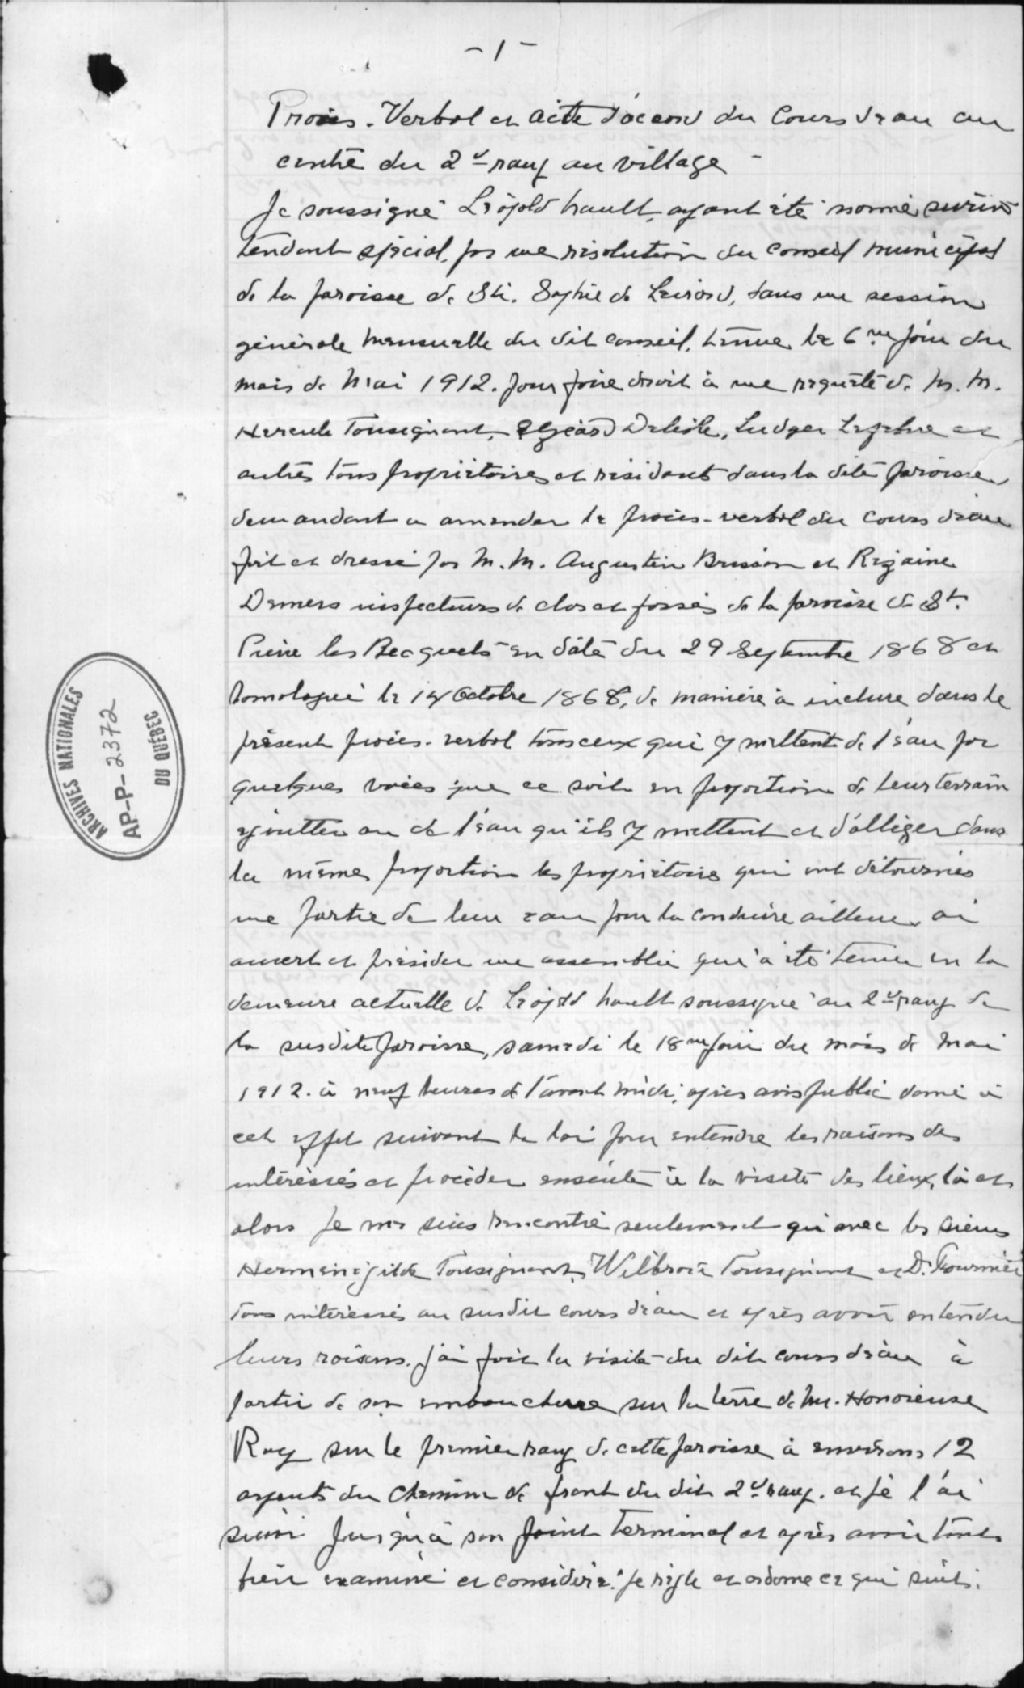 - 1 -
Procès. Verbal et acte d'accord du Cours d'eau au
centre du 2d rang au village -
Je soussigné Léopold hault, ayant été nommé surin
tendant spécial, par une résolution du Conseil municipal
de la paroisse de Ste. Sophie de Levrard, dans une session
générale mensuelle du dit conseil, tenue le 6me jour du
mois de Mai 1912. pour faire droit à une requête de M. M.
Hercule Tousignant, Elzéard Delisle, Ludger Lefebvre et
autres tous propriétaires et résidants dans la dite paroisse
demandant a amender le procès-verbal du cours d'eau
fait et dressé par M. M. Augustin Brisson et
Demers inspecteurs de clos et fossés de la paroisse de St.
Pierre les Becquets en date du 29 Septembre 1868 et
homologué le 14 Octobre 1868, de manière à inclure dans le
présent procès. verbal tous ceux qui y mettent de l'eau par
quelques voies que ce soit en proportion de leur terrain
égoutter ou de l'eau qu'ils y mettent et d'obliger dans
la même proportion les propriétaires qui ont détournés
une partie de leur eau pour la conduire ailleur, ai
ouvert et présider une assemblée qui a été tenue en la
demeure actuelle de Léopold hault soussigné au 2d rang de
la susdite paroisse, samedi le 18me jour du mois de mai
1912. à neuf heures de l'avant midi, après avis public donné à
cet effet suivant la loi pour entendre les raisons des
intéressés et procéder ensuite à la visite des lieux, là et
alors je me suis rencontré seulement qu'avec les sieurs
Herménégilde Tousignant, Wilbroie Tousignant et D. Fournier
tous intéressés au susdit cours d'eau et après avoir entendu
leurs raisons. j'ai fait la visite du dit cours d'eau à
partir de son embouchure sur la terre de M. Honorieuse
Roy sur le premier rang de cette paroisse à environs 12
arpents du chemin de front du dit 2d rang. et je l'ai
suivi jusqu'à son point terminal et après avoir tout
bien examiné et considéré. je règle et ordonne ce qui suit.
ARCHIVES NATIONALES
AP-P-2372
DU QUÉBEC